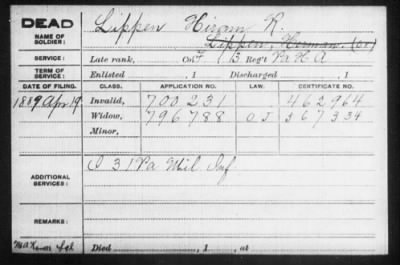 DEAD
NAME OF SOLDIER:
Lippen Hiram K.
Lippen, Herman. (or)
SERVICE:
Late rank, Co. F 1 B Reg't Pa H A
TERM OF SERVICE:
Enlisted , 1 Discharged , 1
DATE OF FILING. CLASS. APPLICATION NO. LAW. CERTIFICATE NO.
1889 Apr 19 Invalid, 700231 462964
Widow, 796788 O J 367334
Minor,
ADDITIONAL SERVICES:
I 31 Pa Mil Inf
REMARKS:
Died , 1 , at